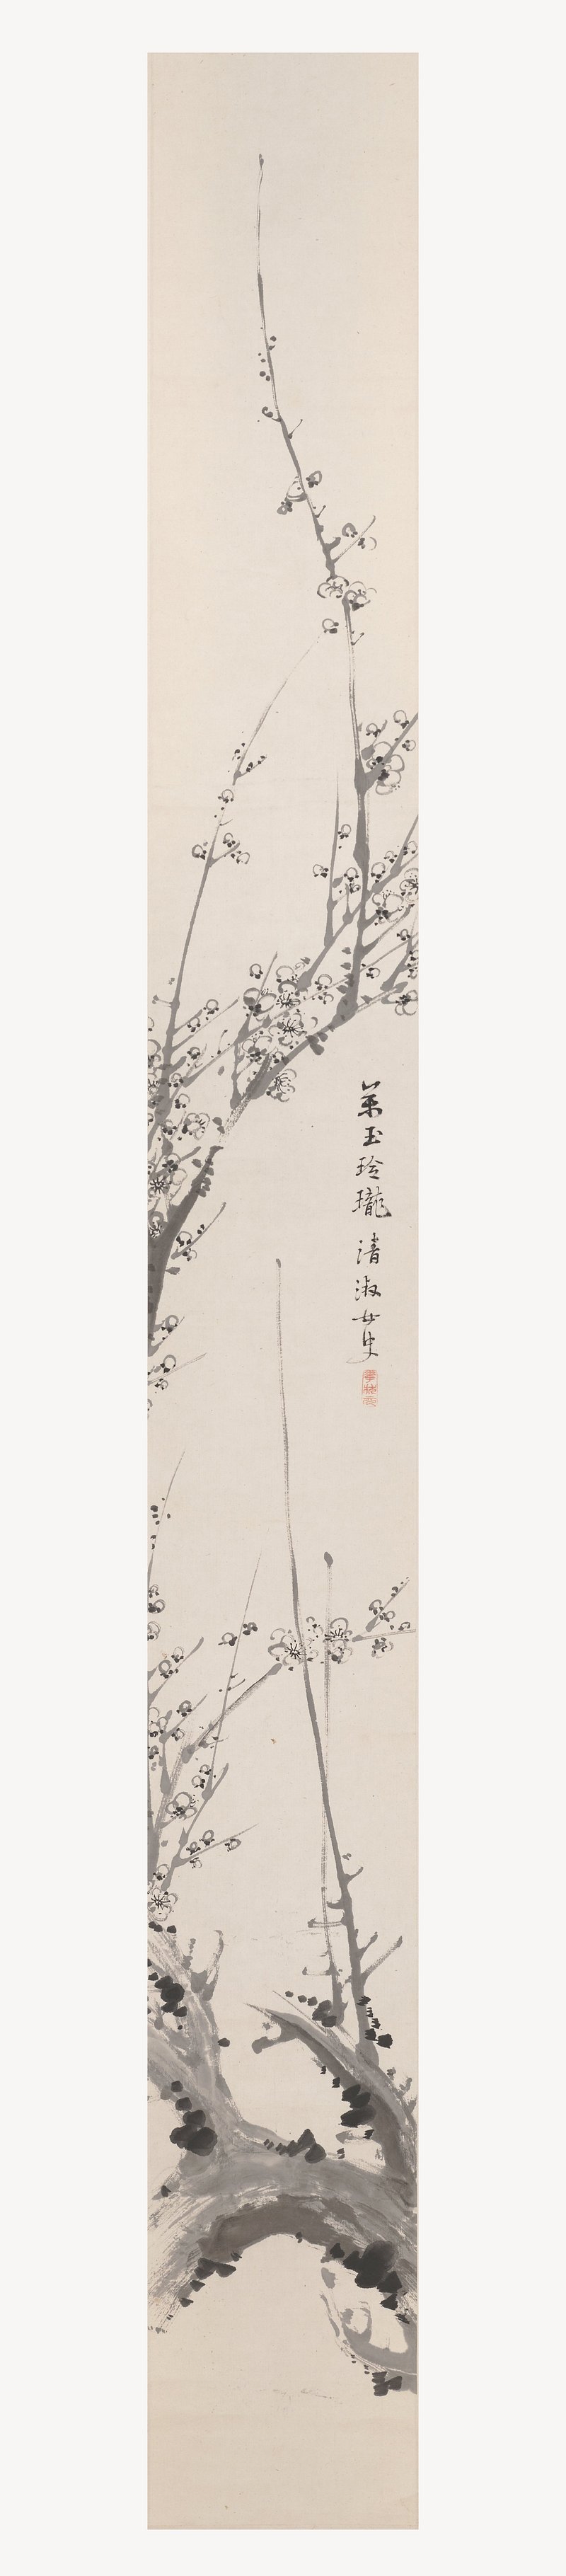 萬玉玲瓏 清淑女史